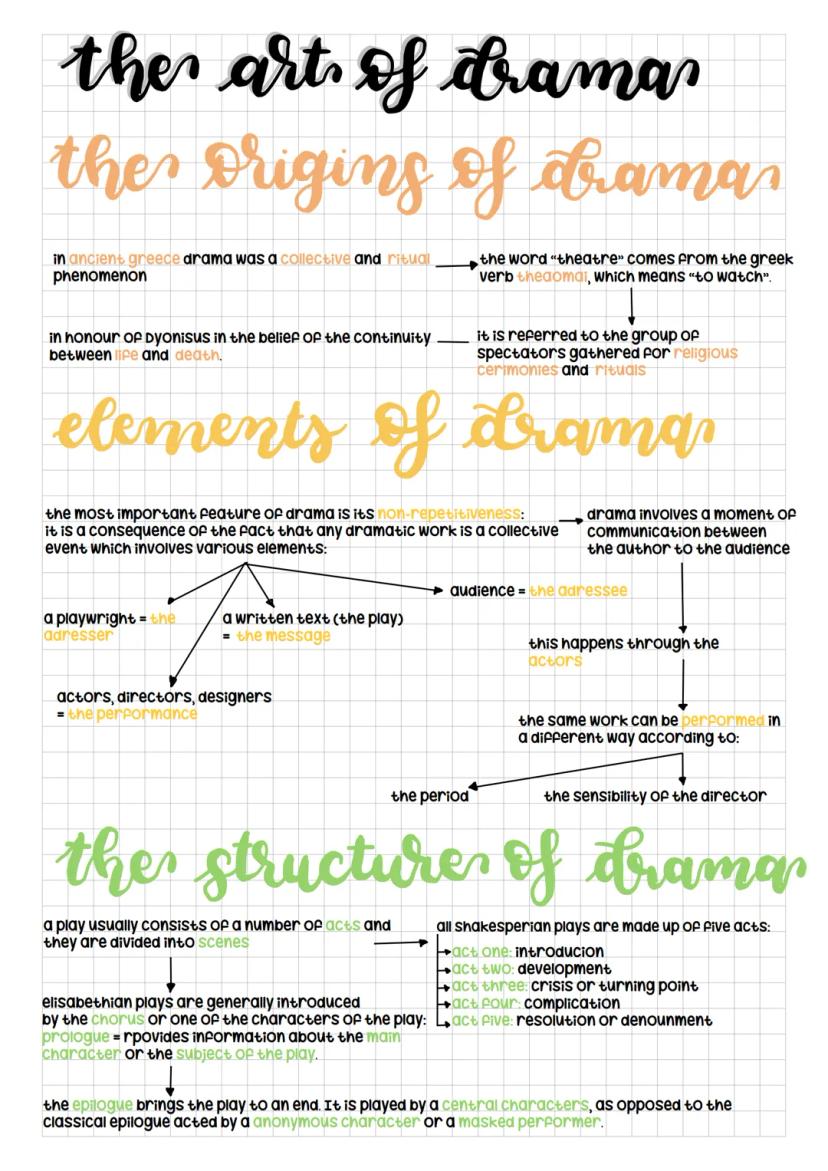 the art of drama
the origins of drama
in ancient greece drama was a collective and ritual
phenomenon
the word “theatre” comes from the greek
verb theaomai, which means “to watch”.
it is referred to the group of
spectators gathered for religious
cerimonies and rituals
in honour of Dyonisus in the belief of the continuity
between life and death.
elements of drama
the most important feature of drama is its non-repetitiveness:
it is a consequence of the fact that any dramatic work is a collective
event which involves various elements:
drama involves a moment of
communication between
the author to the audience
audience = the adressee
a playwright = the
adresser
a written text (the play)
= the message
actors, directors, designers
= the performance
this happens through the
actors
the same work can be performed in
a different way according to:
the period
the sensibility of the director
the structure of drama
a play usually consists of a number of acts and
they are divided into scenes
all shakesperian plays are made up of five acts:
act one: introducion
act two: development
act three: crisis or turning point
act four: complication
act five: resolution or denounment
elisabethian plays are generally introduced
by the chorus or one of the characters of the play:
prologue = rpovides information about the main
character or the subject of the play.
the epilogue brings the play to an end. It is played by a central characters, as opposed to the
classical epilogue acted by a anonymous character or a masked performer.